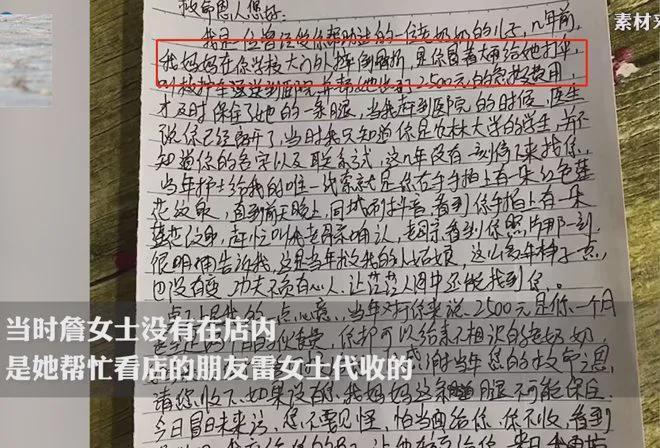 素材来
救命恩人您好:
我是一位曾经受你帮助过的一位老奶奶的儿子,几年前,
我妈妈在你学校大门外摔倒骨折,是你冒着大雨给她打伞,
叫救护车送到医院,并帮她垫付了2500元的急救费用,
才及时保住了她的一条腿,当我赶到医院的时候,医生
说你已经离开了,当时我只知道你是农林大学的学生,并不
知道你的名字以及联系方式,这几年没有一刻停下来找你,
当年护士给我的唯一线索就是你右手手指上有一朵红色莲
花纹身,直到前天晚上,同城刷抖音,看到你手指上有一朵
莲花纹身,赶忙叫我老母亲确认,老母亲看到你照片那一刻,
很明确告诉我,这是当年救我的小姑娘,这么多年样子一点
也没有变,功夫不负有心人,让茫茫人海中还能找到你。
我的一点心意,当年对你来说,2500元是你一个月
你却可以给素不相识的老奶奶
当年您的救命之恩,
请您收下,如果没有你,我妈妈这条腿不可能保住,
今日冒昧来访,您不要见怪,怕当面给你,你不收,看到
当时詹女士没有在店内
是她帮忙看店的朋友雷女士代收的